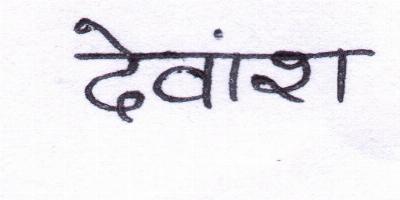 देवांश